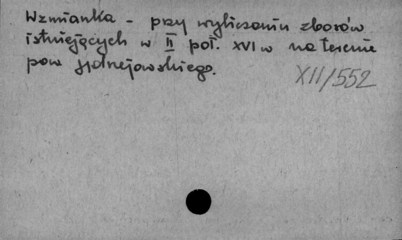 Wzmianka - przy wyliczaniu zborów
istniejących w II poł. XVI w na terenie
pow Jędrzejowskiego.
XII/552